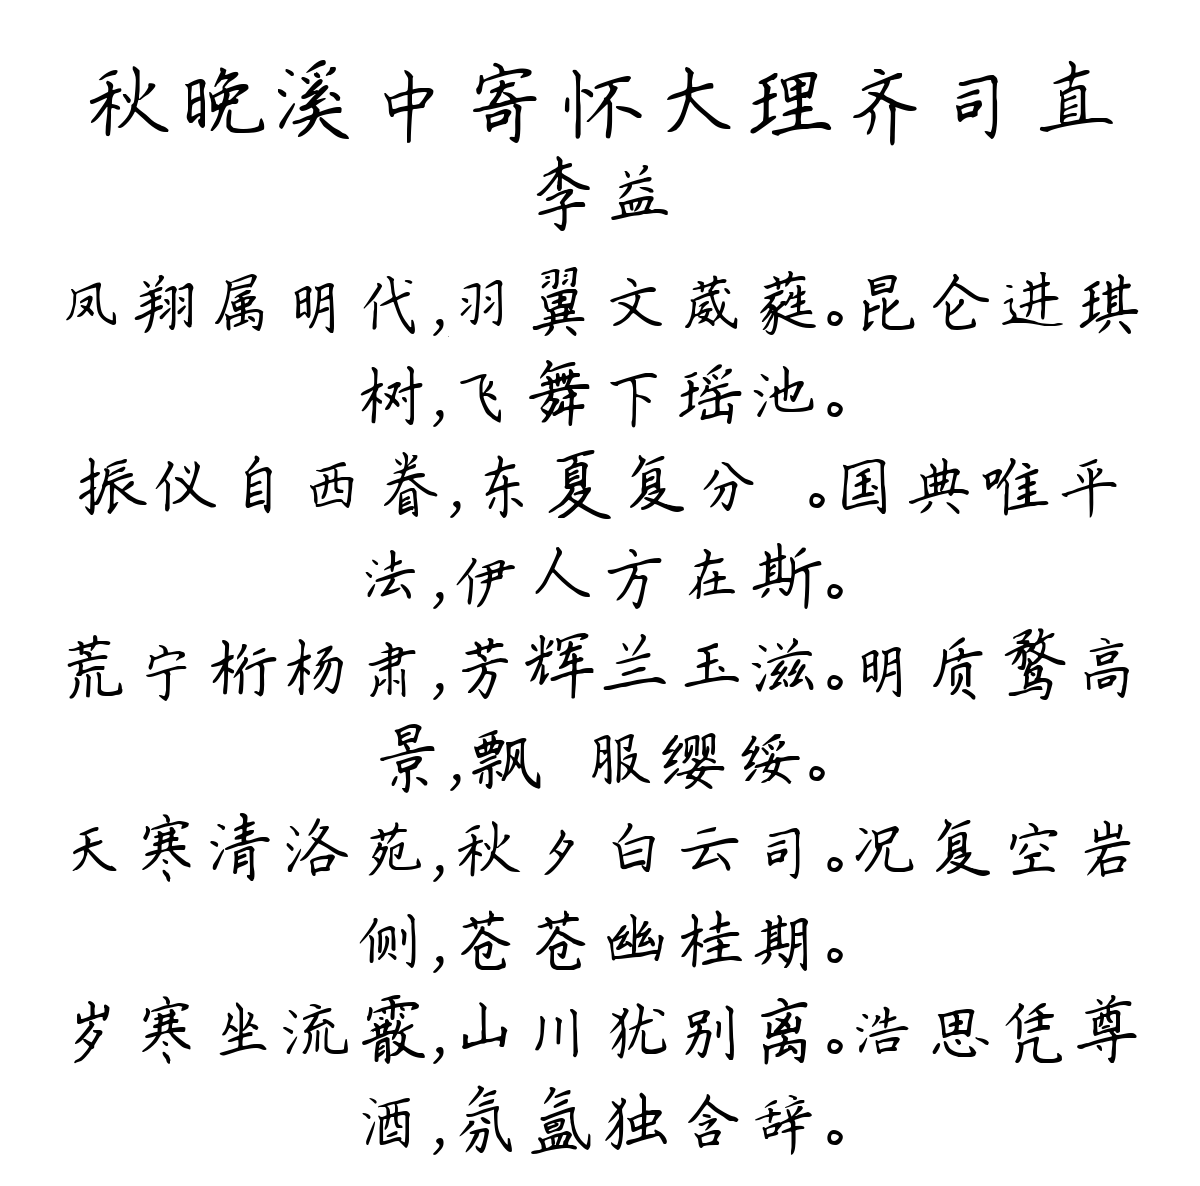 秋晚溪中寄怀大理齐司直
李益
凤翔属明代,羽翼文葳蕤。昆仑进琪
树,飞舞下瑶池。
振仪自西眷,东夏复分 。国典唯平
法,伊人方在斯。
荒宁桁杨肃,芳辉兰玉滋。明质鹜高
景,飘 服缨绥。
天寒清洛苑,秋夕白云司。况复空岩
侧,苍苍幽桂期。
岁寒坐流霰,山川犹别离。浩思凭尊
酒,氛氲独含辞。